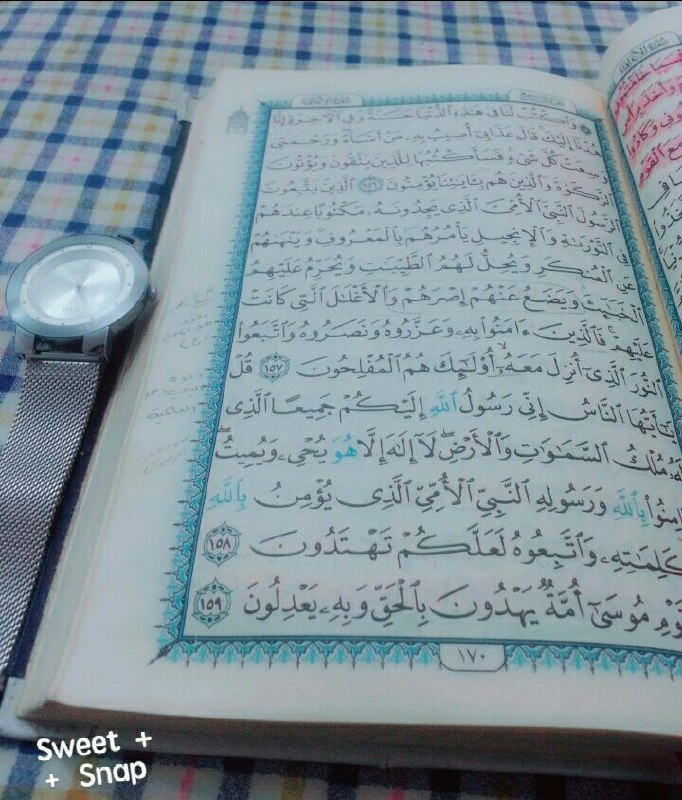 ۞ وَٱكۡتُبۡ لَنَا فِي هَٰذِهِ ٱلدُّنۡيَا حَسَنَةٗ وَفِي ٱلۡأٓخِرَةِ إِنَّا
هُدۡنَآ إِلَيۡكَۚ قَالَ عَذَابِيٓ أُصِيبُ بِهِۦ مَنۡ أَشَآءُۖ وَرَحۡمَتِي
وَسِعَتۡ كُلَّ شَيۡءٖۚ فَسَأَكۡتُبُهَا لِلَّذِينَ يَتَّقُونَ وَيُؤۡتُونَ
ٱلزَّكَوٰةَ وَٱلَّذِينَ هُم بِـَٔايَٰتِنَا يُؤۡمِنُونَ ١٥٦ ٱلَّذِينَ يَتَّبِعُونَ
ٱلرَّسُولَ ٱلنَّبِيَّ ٱلۡأُمِّيَّ ٱلَّذِي يَجِدُونَهُۥ مَكۡتُوبًا عِندَهُمۡ
فِي ٱلتَّوۡرَىٰةِ وَٱلۡإِنجِيلِ يَأۡمُرُهُم بِٱلۡمَعۡرُوفِ وَيَنۡهَىٰهُمۡ
عَنِ ٱلۡمُنكَرِ وَيُحِلُّ لَهُمُ ٱلطَّيِّبَٰتِ وَيُحَرِّمُ عَلَيۡهِمُ
ٱلۡخَبَٰٓئِثَ وَيَضَعُ عَنۡهُمۡ إِصۡرَهُمۡ وَٱلۡأَغۡلَٰلَ ٱلَّتِي كَانَتۡ
عَلَيۡهِمۡۚ فَٱلَّذِينَ ءَامَنُواْ بِهِۦ وَعَزَّرُوهُ وَنَصَرُوهُ وَٱتَّبَعُواْ
ٱلنُّورَ ٱلَّذِيٓ أُنزِلَ مَعَهُۥٓ أُوْلَٰٓئِكَ هُمُ ٱلۡمُفۡلِحُونَ ١٥٧ قُلۡ
يَٰٓأَيُّهَا ٱلنَّاسُ إِنِّي رَسُولُ ٱللَّهِ إِلَيۡكُمۡ جَمِيعًا ٱلَّذِي
لَهُۥ مُلۡكُ ٱلسَّمَٰوَٰتِ وَٱلۡأَرۡضِۖ لَآ إِلَٰهَ إِلَّا هُوَ يُحۡيِۦ وَيُمِيتُۖ
امِنُواْ بِٱللَّهِ وَرَسُولِهِ ٱلنَّبِيِّ ٱلۡأُمِّيِّ ٱلَّذِي يُؤۡمِنُ بِٱللَّهِ
كَلِمَٰتِهِۦ وَٱتَّبِعُوهُ لَعَلَّكُمۡ تَهۡتَدُونَ ١٥٨
وۡمِ مُوسَىٰٓ أُمَّةٞ يَهۡدُونَ بِٱلۡحَقِّ وَبِهِۦ يَعۡدِلُونَ ١٥٩
١٧٠
Sweet +
+ Snap